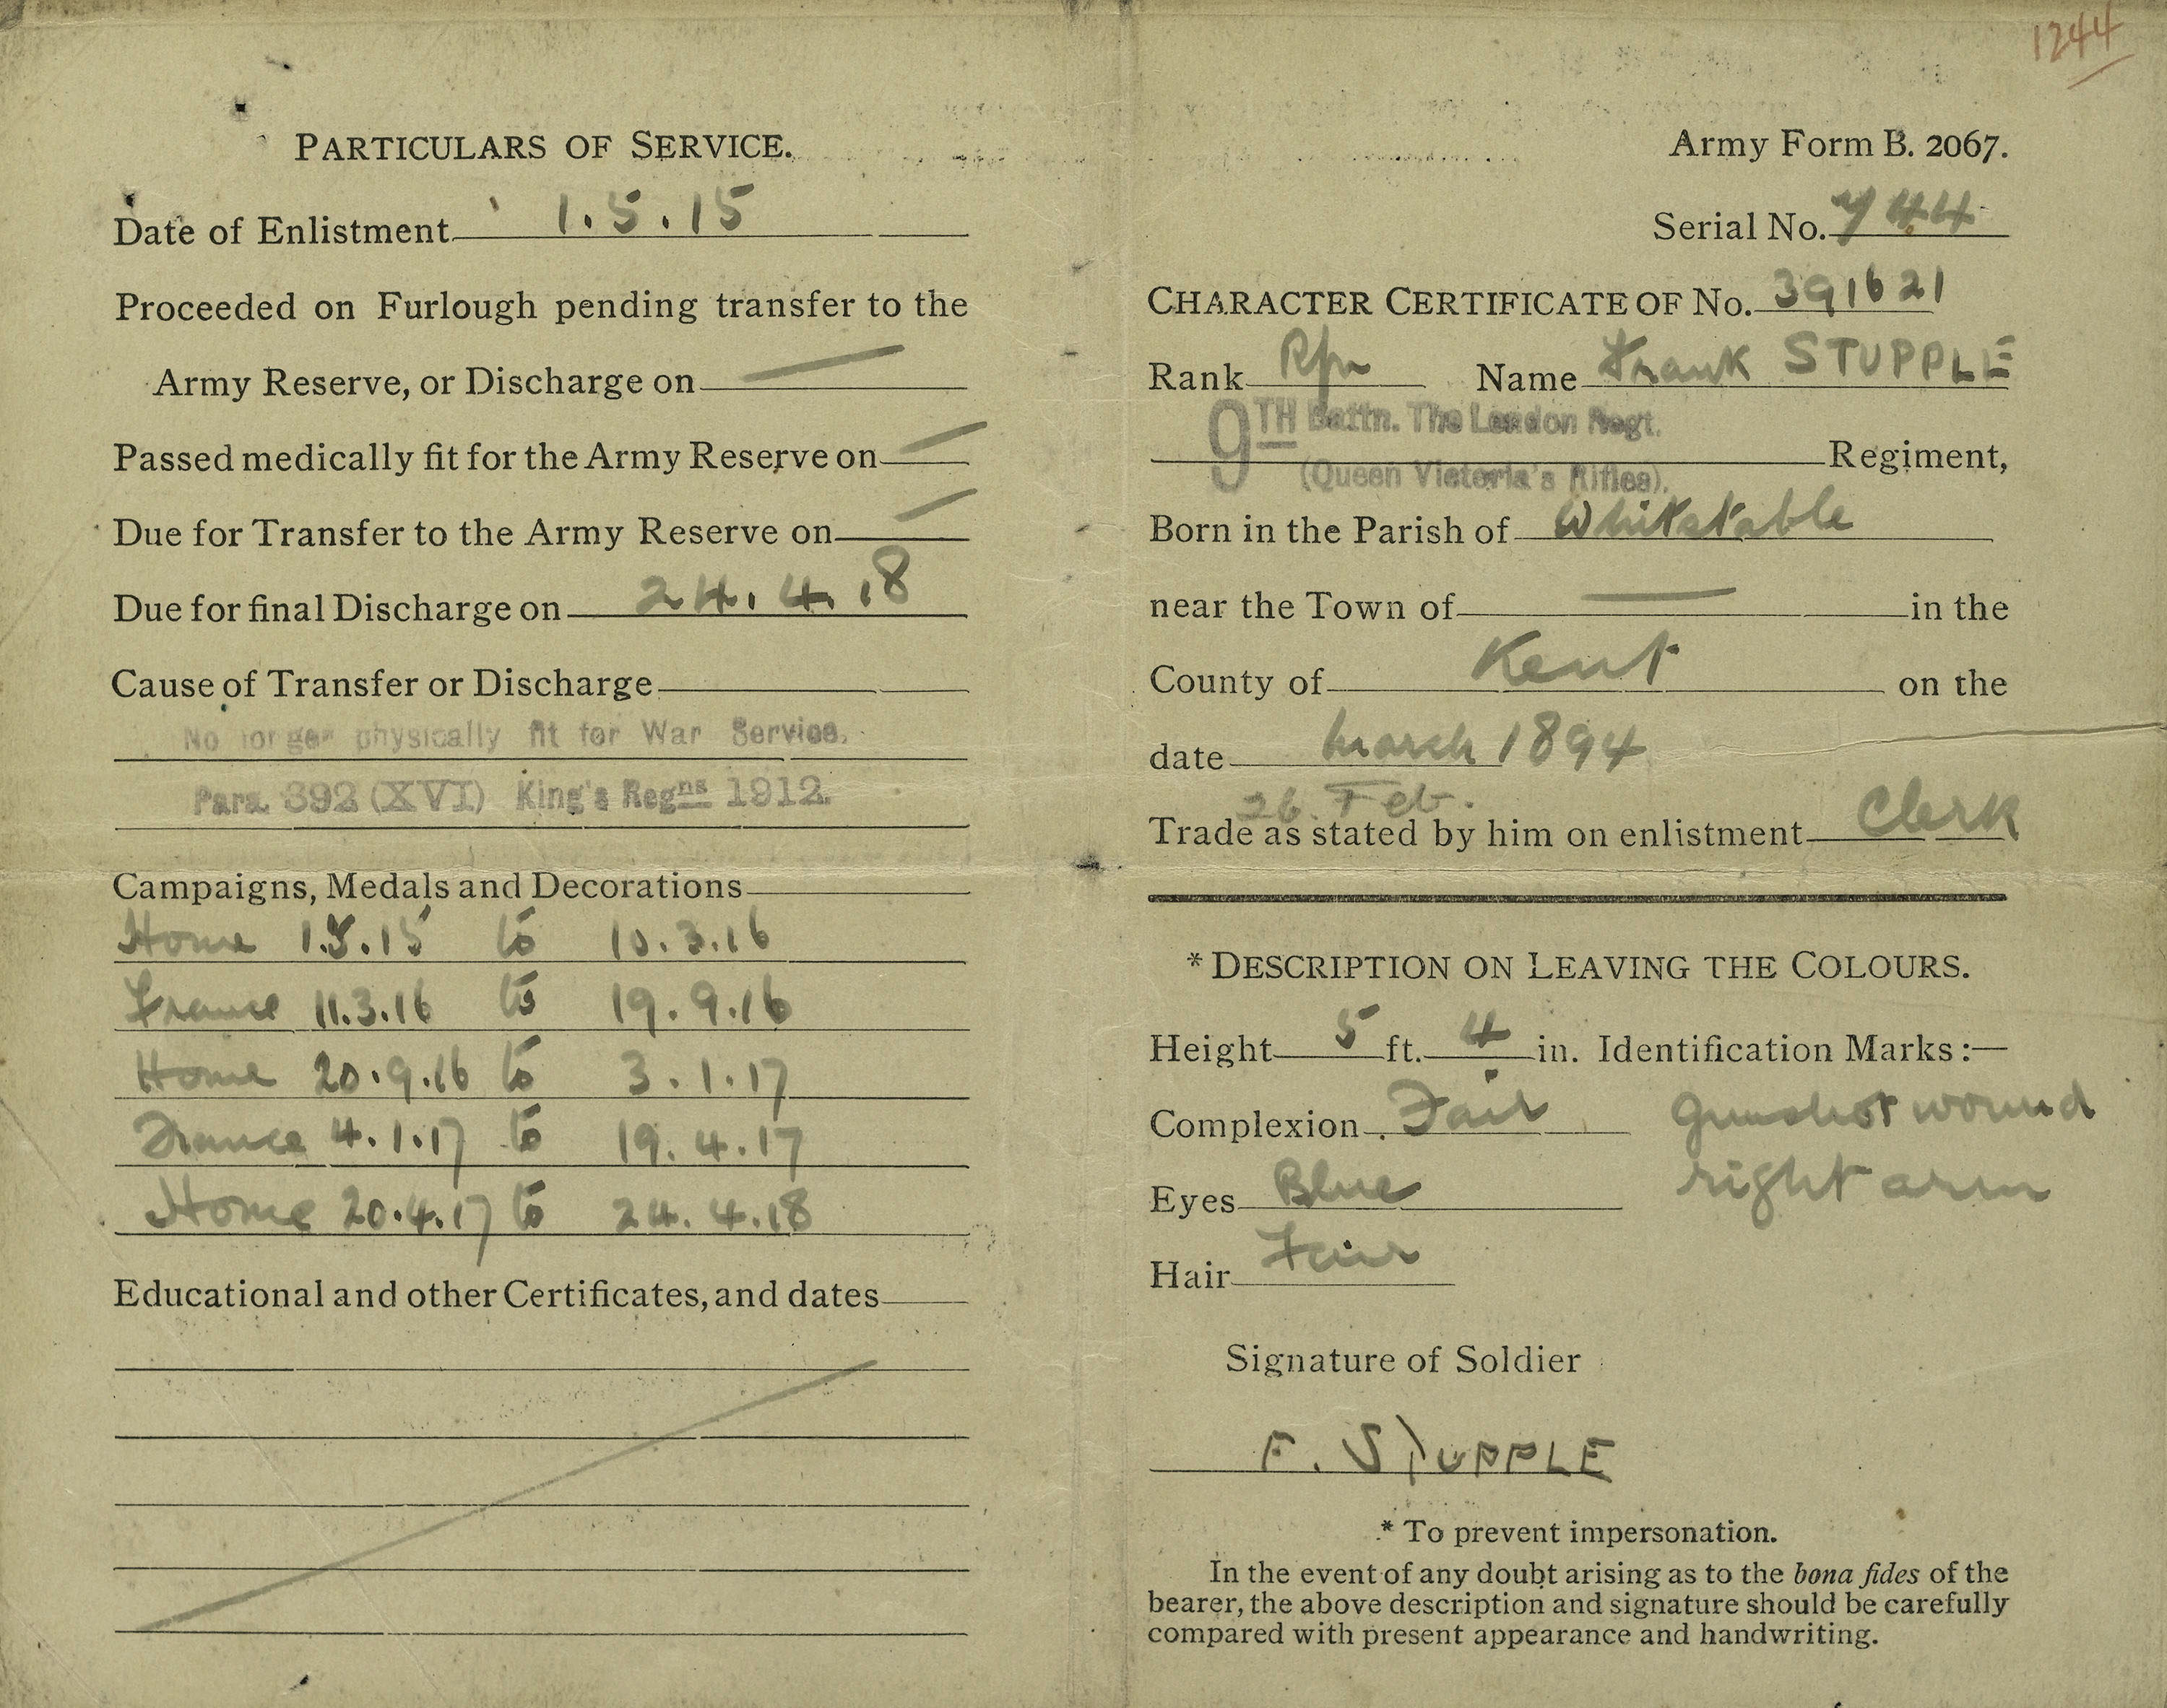 PARTICULARS OF SERVICE.
Date of Enlistment 1.5.15
Proceeded on Furlough pending transfer to the
Army Reserve, or Discharge on
Passed medically fit for the Army Reserve on
Due for Transfer to the Army Reserve on
Due for final Discharge on 24.4.18
Cause of Transfer or Discharge
No longer physically fit for War Service.
Para. 392 (XVI) King's Regns 1912.
Campaigns, Medals and Decorations
Home 1.5.15 to 10.3.16
France 11.3.16 to 19.9.16
Home 20.9.16 to 3.1.17
France 4.1.17 to 19.4.17
Home 20.4.17 to 24.4.18
Educational and other Certificates, and dates
1244
Army Form B. 2067.
Serial No. 744
CHARACTER CERTIFICATE OF No. 391621
Rank Rfn Name Frank STUPPLE
9TH Battn. The London Regt.
Regiment,
(Queen Victoria's Rifles).
Born in the Parish of Whitstable
near the Town of in the
County of Kent on the
date March 1894
26. Feb.
Trade as stated by him on enlistment Clerk
* DESCRIPTION ON LEAVING THE COLOURS.
Height 5 ft. 4 in. Identification Marks :—
Complexion Fair Gunshot wound
Eyes Blue right arm
Hair Fair
Signature of Soldier
F. STUPPLE
* To prevent impersonation.
In the event of any doubt arising as to the bona fides of the
bearer, the above description and signature should be carefully
compared with present appearance and handwriting.